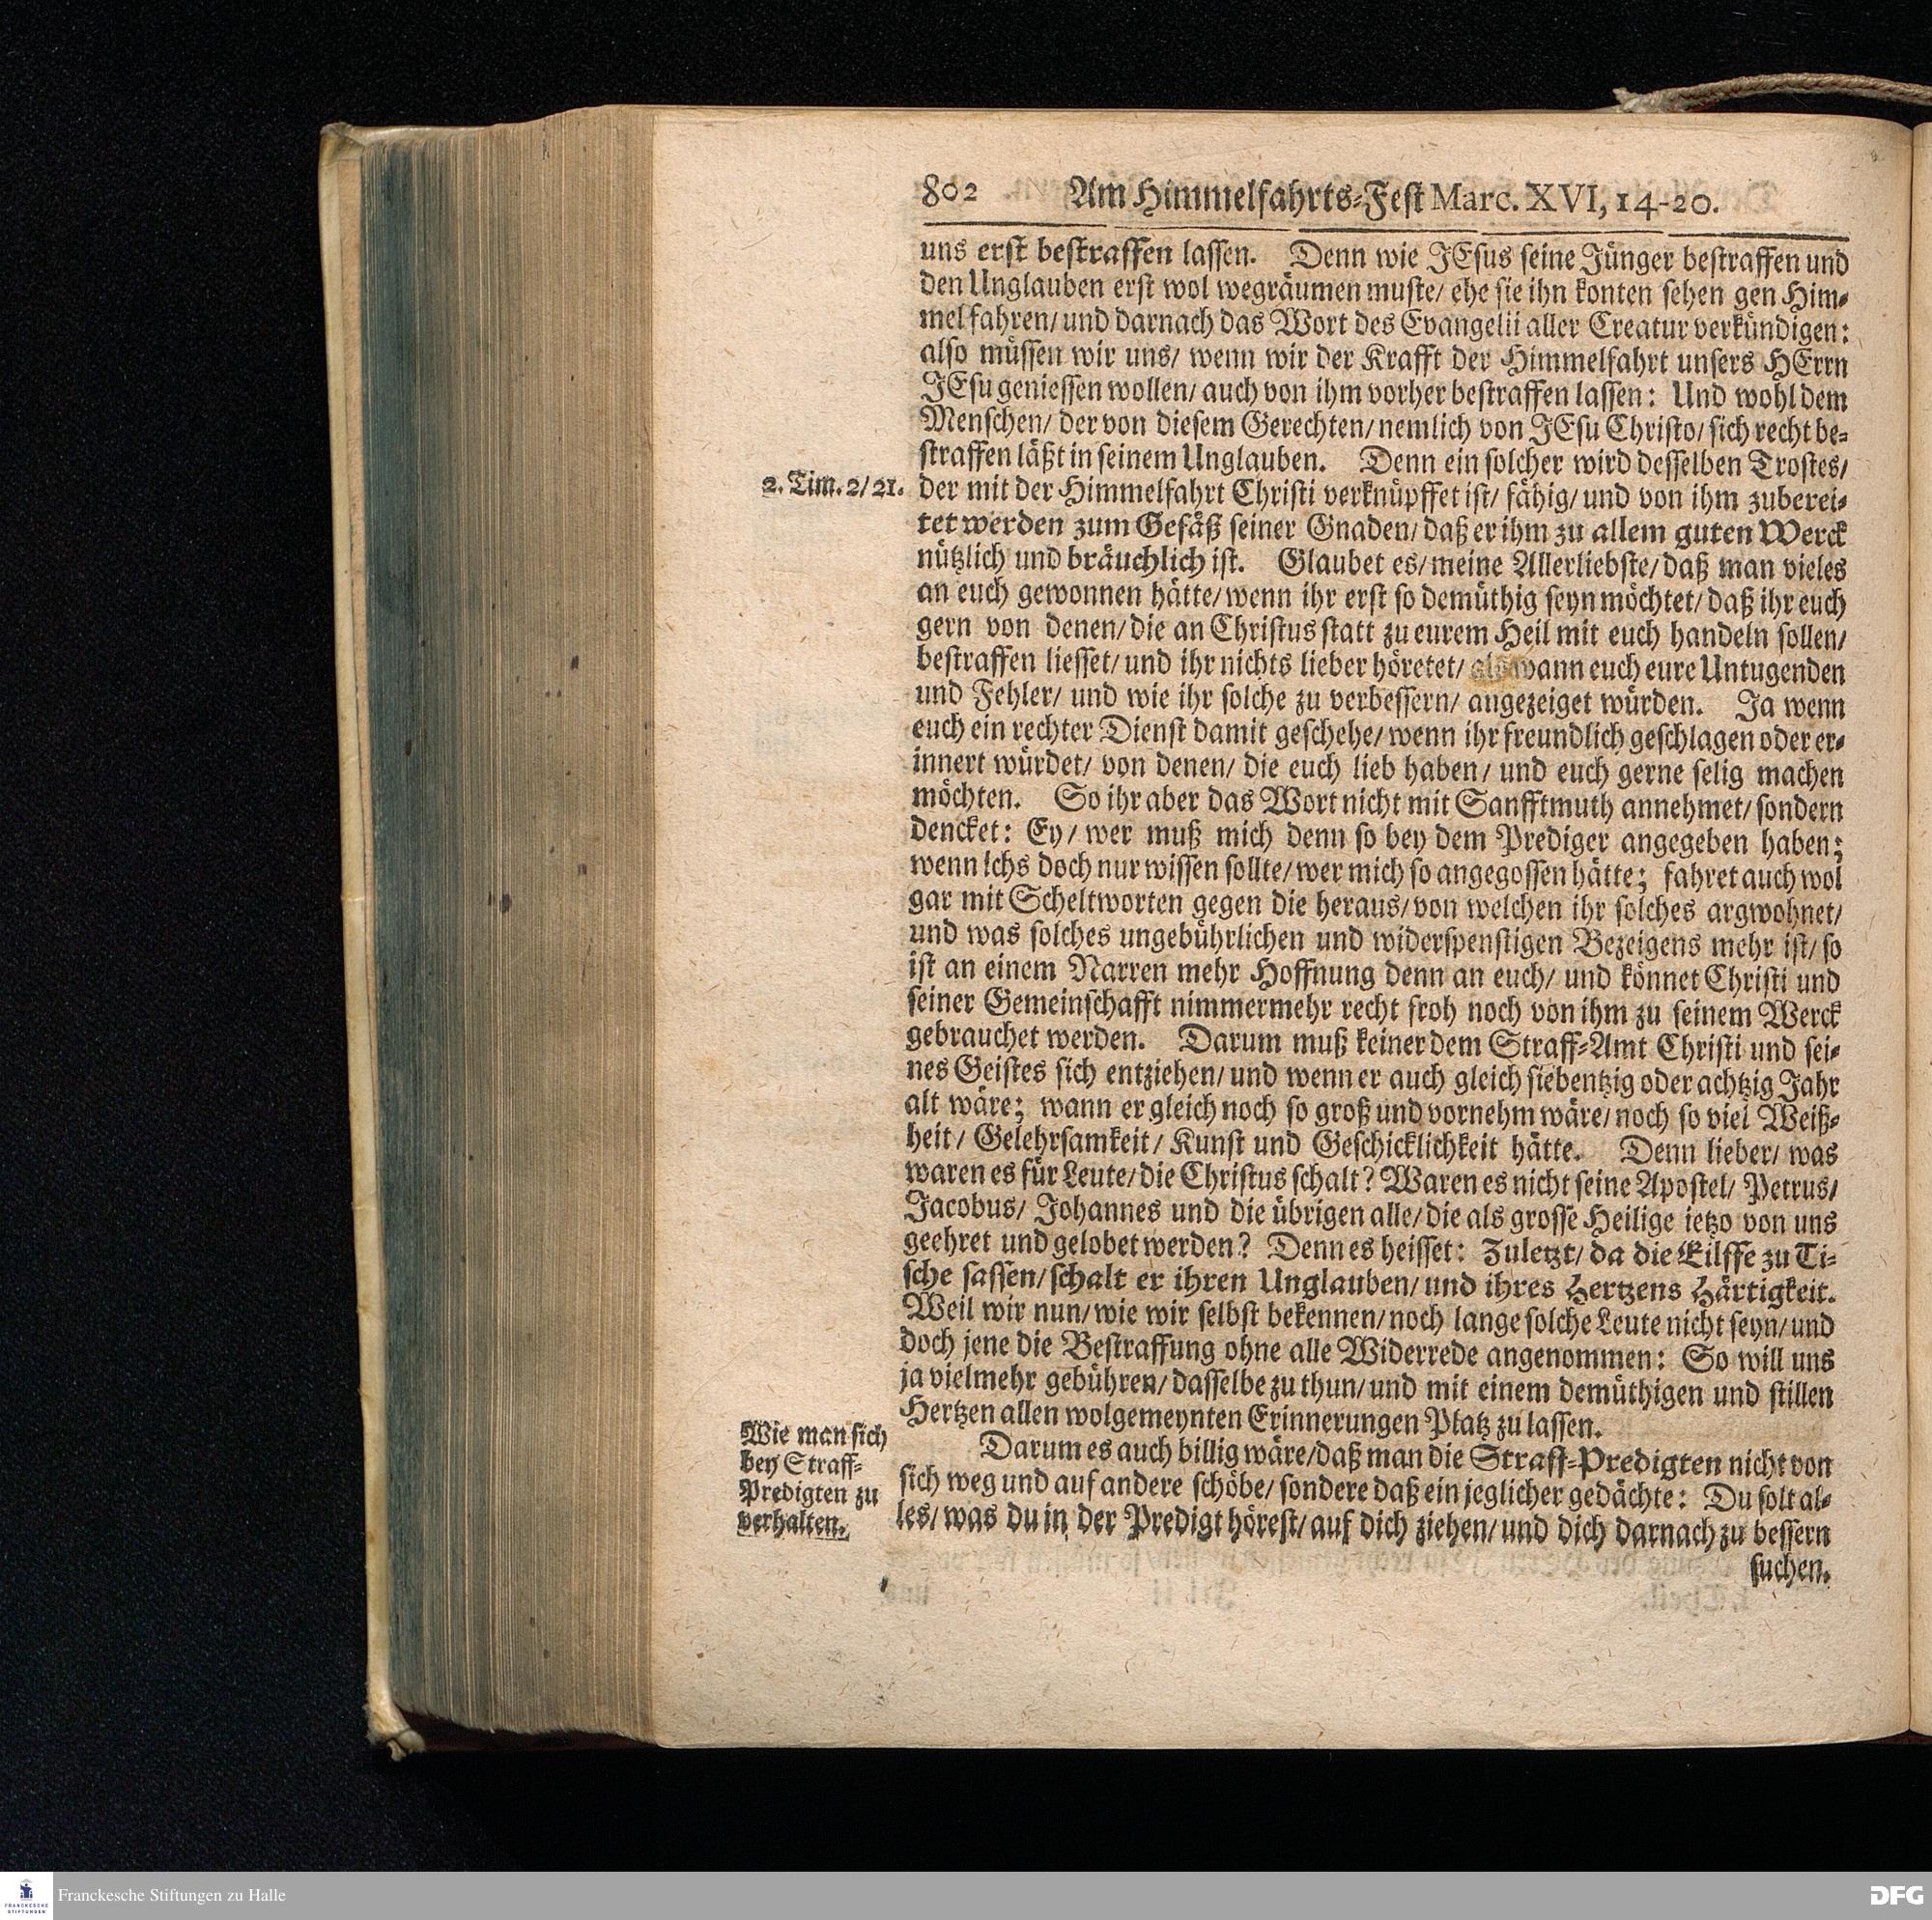 802 Am Himmelfahrts-Fest Marc. XVI, 14-20.
uns erst bestraffen lassen. Denn wie JEsus seine Jünger bestraffen und
den Unglauben erst wol wegräumen muste/ ehe sie ihn konten sehen gen Him-
mel fahren/ und darnach das Wort des Evangelii aller Creatur verkündigen:
also müssen wir uns/ wenn wir der Krafft der Himmelfahrt unsers HErrn
JEsu geniessen wollen/ auch von ihm vorher bestraffen lassen: Und wohl dem
Menschen/ der von diesem Gerechten/ nemlich von JEsu Christo/ sich recht be-
straffen läßt in seinem Unglauben. Denn ein solcher wird desselben Trostes/
2. Tim. 2/21.
der mit der Himmelfahrt Christi verknüpffet ist/ fähig/ und von ihm zuberei-
tet werden zum Gefäß seiner Gnaden/ daß er ihm zu allem guten Werck
nützlich und bräuchlich ist. Glaubet es/ meine Allerliebste/ daß man vieles
an euch gewonnen hätte/ wenn ihr erst so demüthig seyn möchtet/ daß ihr euch
gern von denen/ die an Christus statt zu eurem Heil mit euch handeln sollen/
bestraffen liesset/ und ihr nichts lieber höretet/ als wann euch eure Untugenden
und Fehler/ und wie ihr solche zu verbessern/ angezeiget würden. Ja wenn
euch ein rechter Dienst damit geschehe/ wenn ihr freundlich geschlagen oder er-
innert würdet/ von denen/ die euch lieb haben/ und euch gerne selig machen
möchten. So ihr aber das Wort nicht mit Sanfftmuth annehmet/ sondern
dencket: Ey/ wer muß mich denn so bey dem Prediger angegeben haben;
wenn ichs doch nur wissen sollte/ wer mich so angegossen hätte; fahret auch wol
gar mit Scheltworten gegen die heraus/ von welchen ihr solches argwohnet/
und was solches ungebührlichen und widerspenstigen Bezeigens mehr ist/ so
ist an einem Narren mehr Hoffnung denn an euch/ und könnet Christi und
seiner Gemeinschafft nimmermehr recht froh noch von ihm zu seinem Werck
gebrauchet werden. Darum muß keiner dem Straff-Amt Christi und sei-
nes Geistes sich entziehen/ und wenn er auch gleich siebentzig oder achtzig Jahr
alt wäre; wann er gleich noch so groß und vornehm wäre/ noch so viel Weiß-
heit/ Gelehrsamkeit/ Kunst und Geschicklichkeit hätte. Denn lieber/ was
waren es für Leute/ die Christus schalt? Waren es nicht seine Apostel/ Petrus/
Jacobus/ Johannes und die übrigen alle/ die als grosse Heilige ietzo von uns
geehret und gelobet werden? Denn es heisset: Zuletzt/ da die Eilffe zu Ti-
sche sassen/ schalt er ihren Unglauben/ und ihres Hertzens Härtigkeit.
Weil wir nun/ wie wir selbst bekennen/ noch lange solche Leute nicht seyn/ und
doch jene die Bestraffung ohne alle Widerrede angenommen: So will uns
ja vielmehr gebühren/ dasselbe zu thun/ und mit einem demüthigen und stillen
Hertzen allen wolgemeynten Erinnerungen Platz zu lassen.
Wie man sich
bey Straff-
Predigten zu
verhalten.
Darum es auch billig wäre/ daß man die Straff-Predigten nicht von
sich weg und auf andere schöbe/ sondere daß ein jeglicher gedächte: Du solt al-
les/ was du in der Predigt hörest/ auf dich ziehen/ und dich darnach zu bessern
suchen.
Franckesche Stiftungen zu Halle
FRANCKESCHE
STIFTUNGEN
DFG